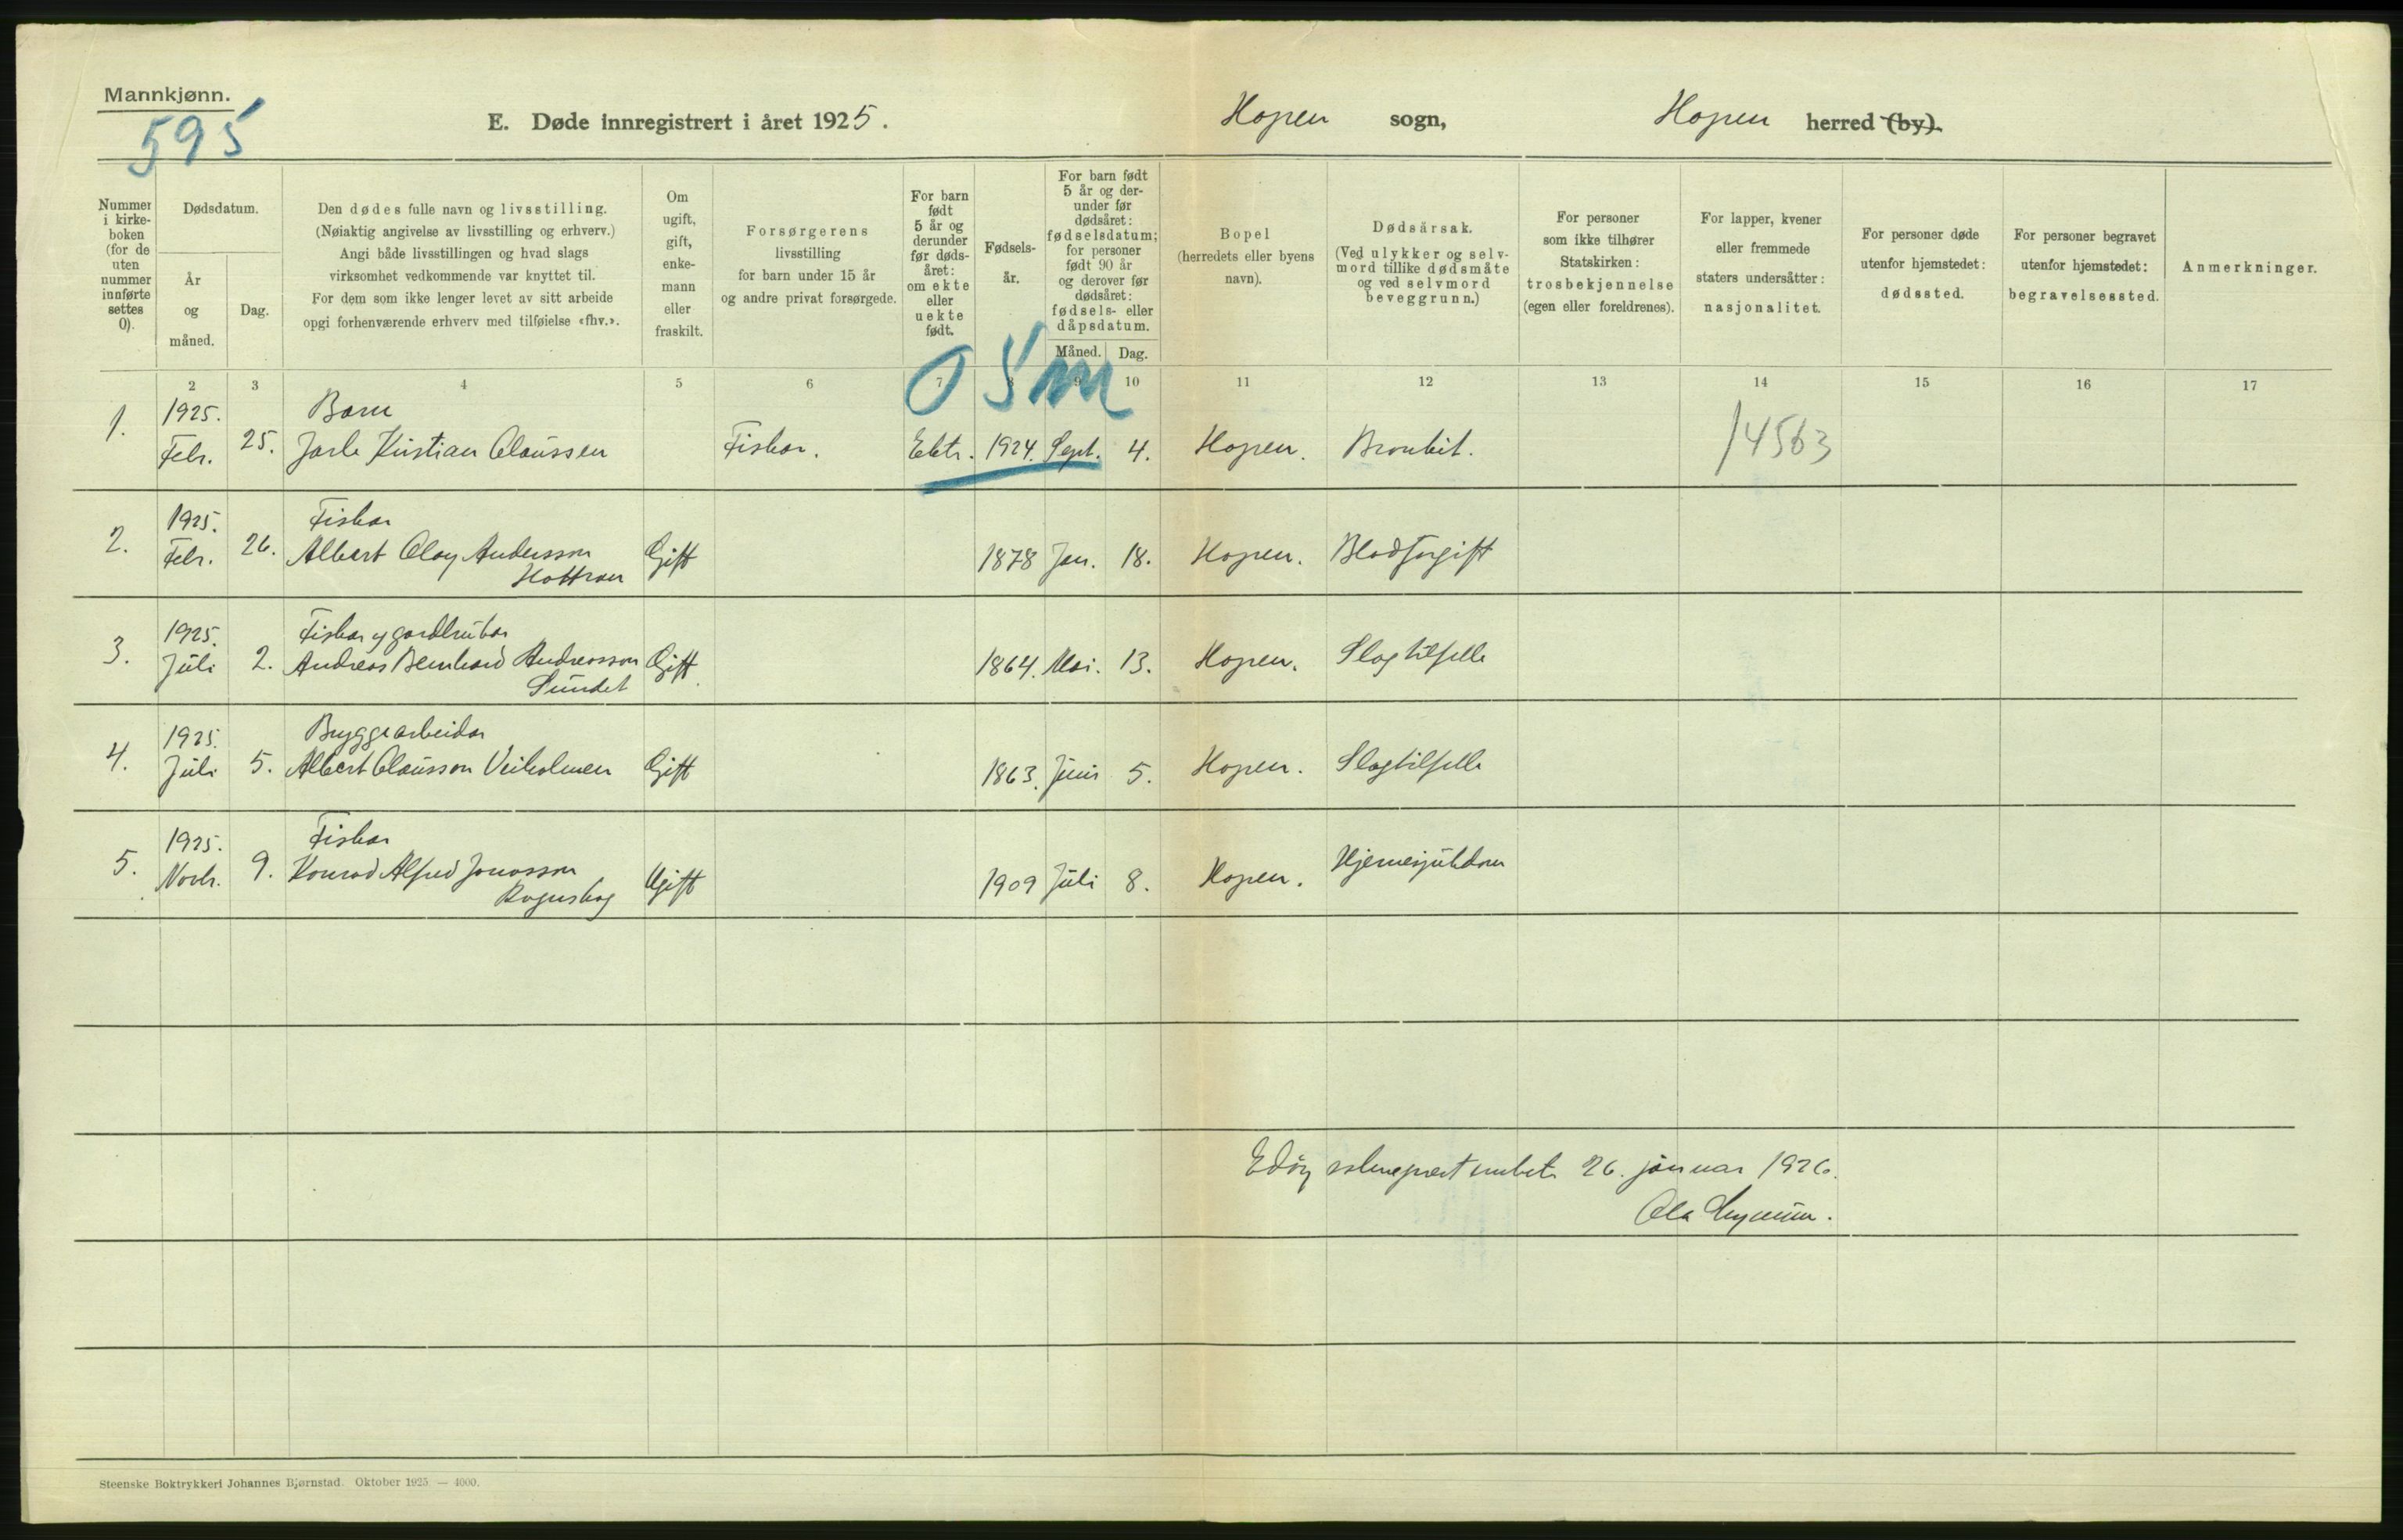 Mannkjønn.
595
E. Døde innregistrert i året 1925.
Hopen sogn,
Hopen herred (by).
Nummer i kirke- boken (for de uten nummer innførte settes 0).
Dødsdatum.
År og måned.
Dag.
Den dødes fulle navn og livsstilling.
(Nøiaktig angivelse av livsstilling og erhverv.)
Angi både livsstillingen og hvad slags
virksomhet vedkommende var knyttet til.
For dem som ikke lenger levet av sitt arbeide
opgi forhenværende erhverv med tilføielse «fhv.».
Om ugift, gift, enke- mann eller fraskilt.
Forsørgerens
livsstilling
for barn under 15 år
og andre privat forsørgede.
For barn født 5 år og derunder før døds- året: om ekte eller uekte født.
Fødsels- år.
For barn født 5 år og der- under før dødsåret: fødselsdatum; for personer født 90 år og derover før dødsåret: fødsels- eller dåpsdatum.
Måned. Dag.
Bopel
(herredets eller byens
navn).
Dødsårsak.
(Ved ulykker og selv-
mord tillike dødsmåte
og ved selvmord
beveggrunn.)
For personer
som ikke tilhører
Statskirken:
trosbekjennelse
(egen eller foreldrenes).
For lapper, kvener
eller fremmede
staters undersåtter:
nasjonalitet.
For personer døde
utenfor hjemstedet:
dødssted.
For personer begravet
utenfor hjemstedet:
begravelsessted.
Anmerkninger.
2 3 4 5 6 7 8 9 10 11 12 13 14 15 16 17
1925. Barn
1. Febr. 25. Jarle Kristian Claussen Fiskar. Ekte. 1924. Sept. 4. Hopen. Bronkit. 14563
1925. Fiskar
2. Febr. 26. Albert Olay Andersson Gift 1878 Jan. 18. Hopen. Blodforgift
1925. Fiskar og gardbrukar
3. Juli 2. Andreas Bernhard Andreasson Gift 1864. Mai. 13. Hopen. Slagtilfelle
Sundet
1925. Bryggearbeidar
4. Juli 5. Albert Clausson Veiholmen Gift 1863. Juni 5. Hopen. Slagtilfelle
1925. Fiskar
5. Novb. 9. Konrad Alfred Jonasson Ugift 1909 Juli 8. Hopen. Hjernesjukdom
Edøy sokneprestembete 26. januar 1926.
Ola
Steenske Boktrykkeri Johannes Bjørnstad. Oktober 1925 — 4000.